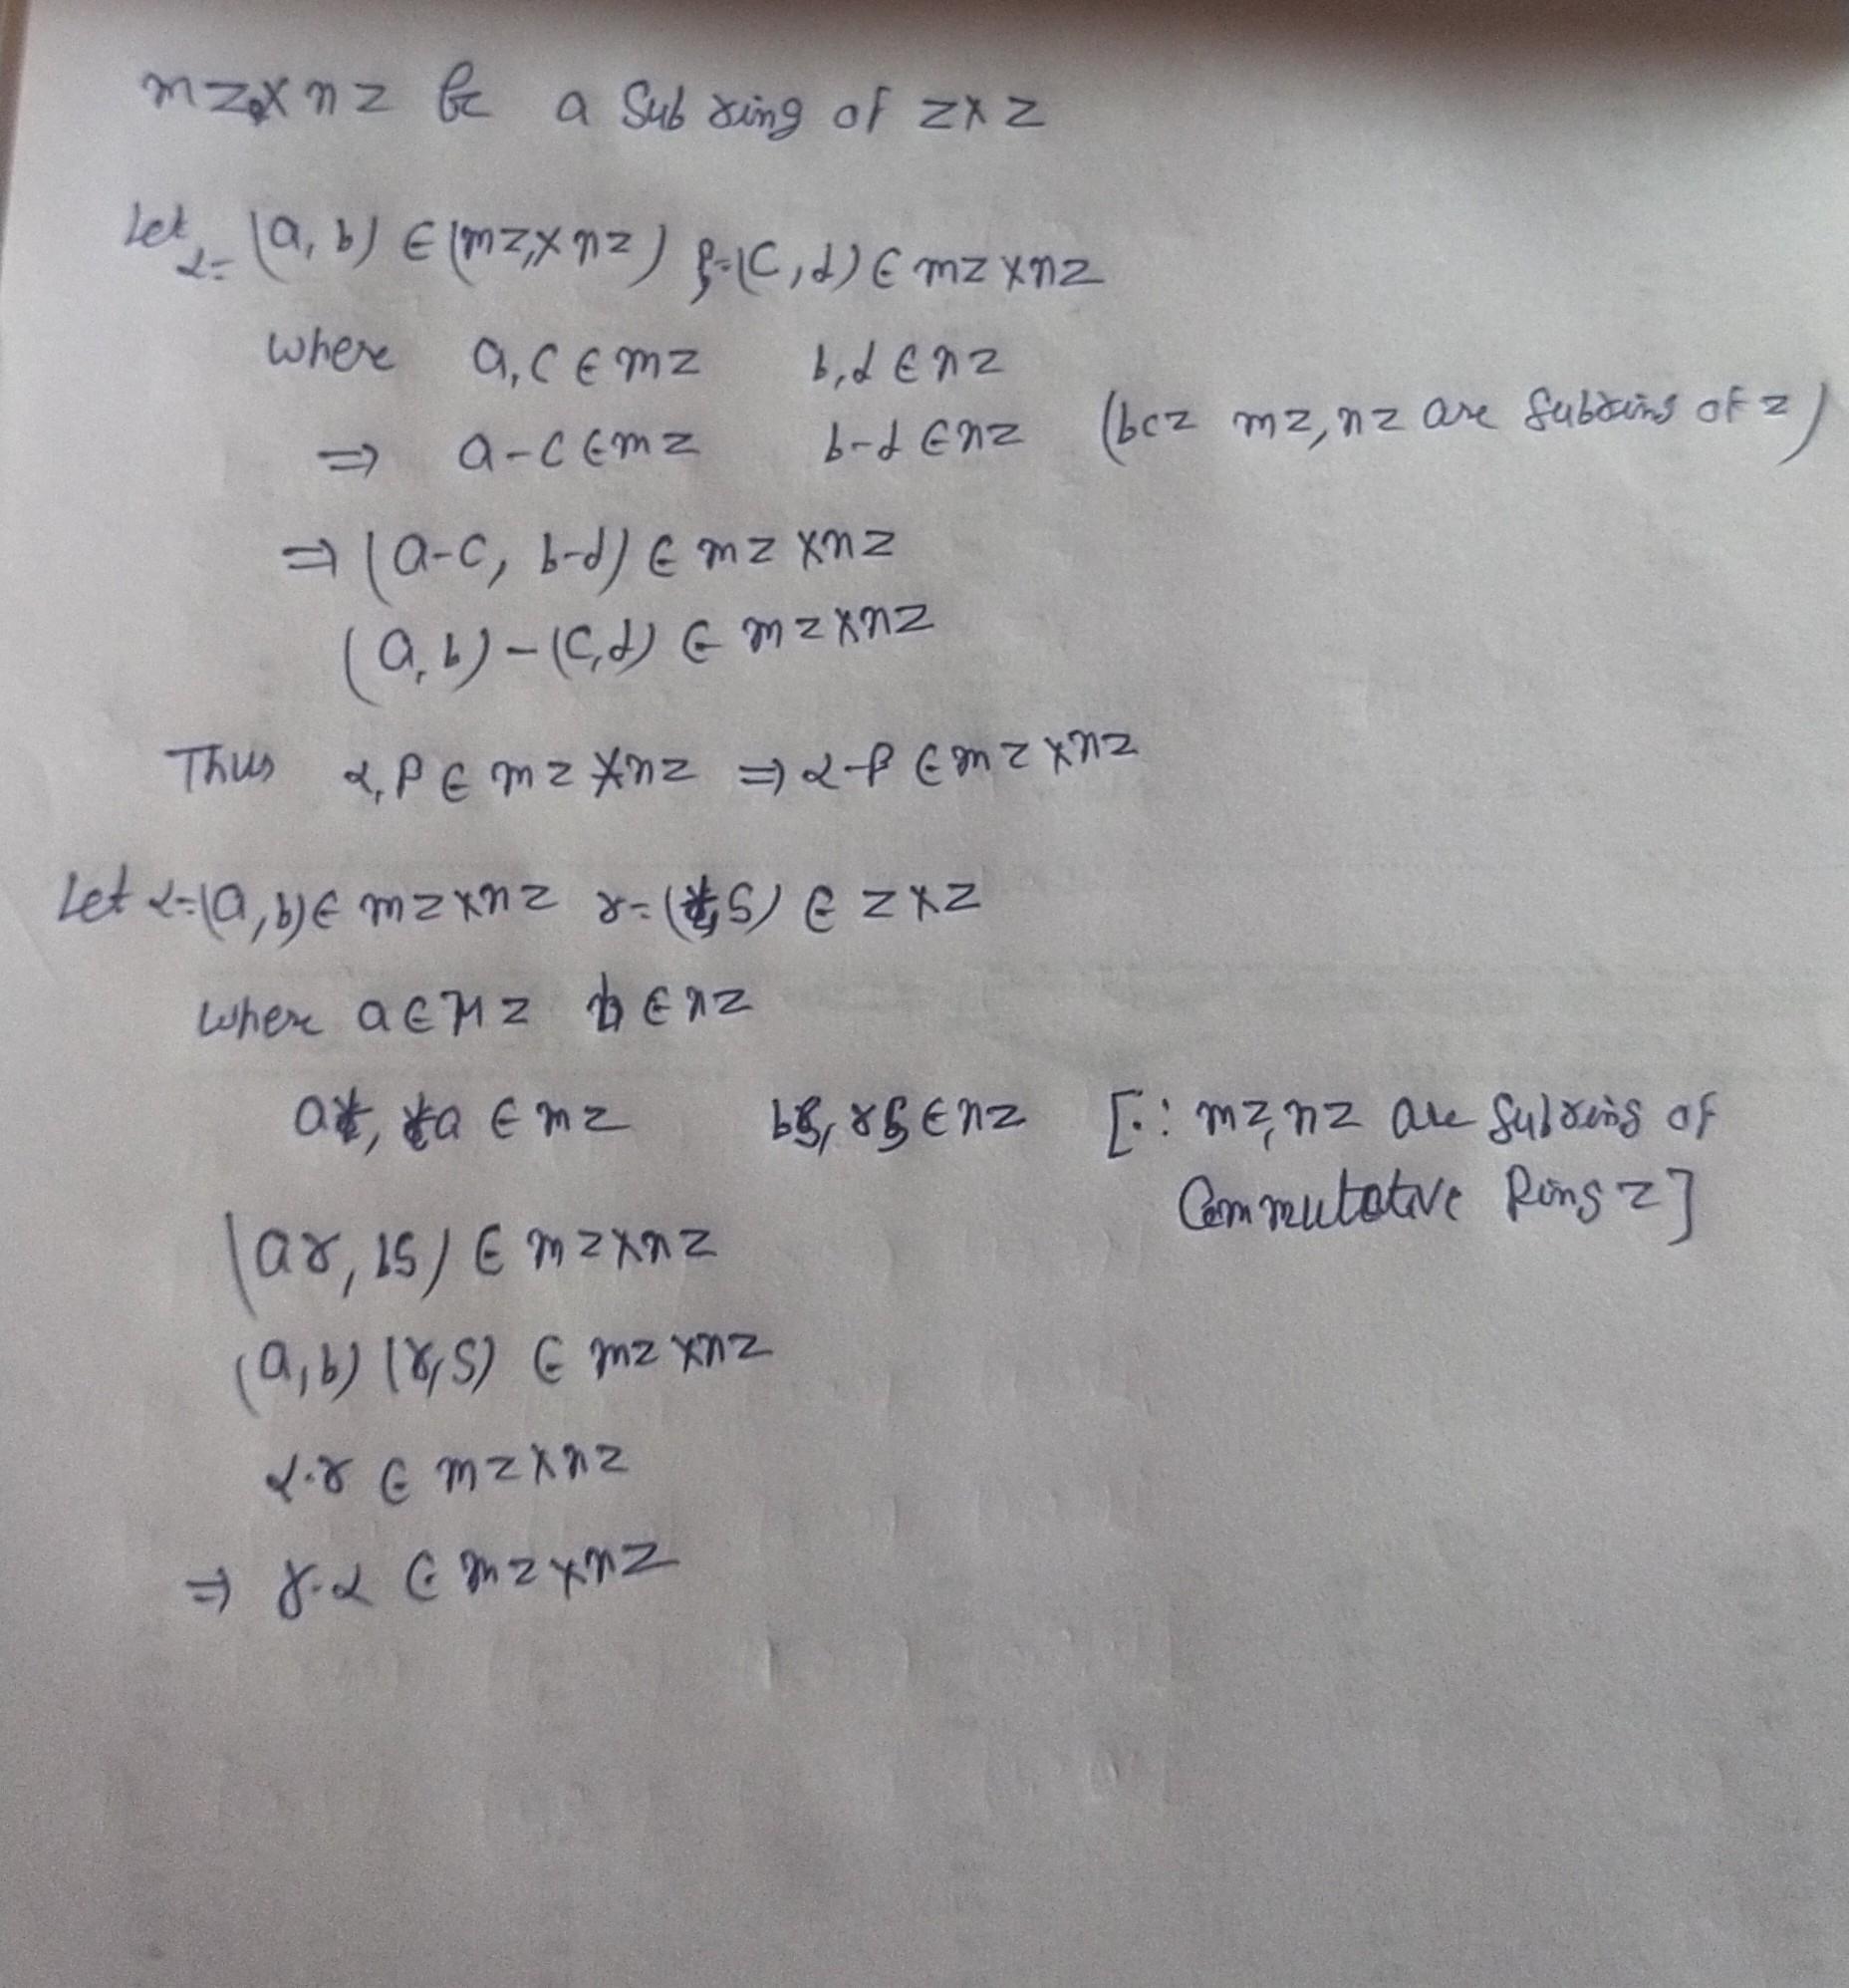 mz×nz be a Sub ring of z×z
Let α=(a,b) ∈(mz×nz) β=(c,d)∈ mz×nz
where a,c∈mz b,d∈nz
⇒ a-c∈mz b-d∈nz (bcz mz,nz are Subrins of z)
⇒(a-c, b-d)∈mz×nz
(a,b)-(c,d)∈mz×nz
Thus α,β∈mz×nz ⇒α-β∈mz×nz
Let α=(a,b)∈mz×nz γ=(r,s)∈z×z
where a∈mz b∈nz
ar, ra∈mz bs, ∈nz [∵ mz,nz are Subring of
Commutative Ring z]
(ar,bs)∈mz×nz
(a,b)(r,s)∈mz×nz
α.γ∈mz×nz
⇒ γ.α∈mz×nz